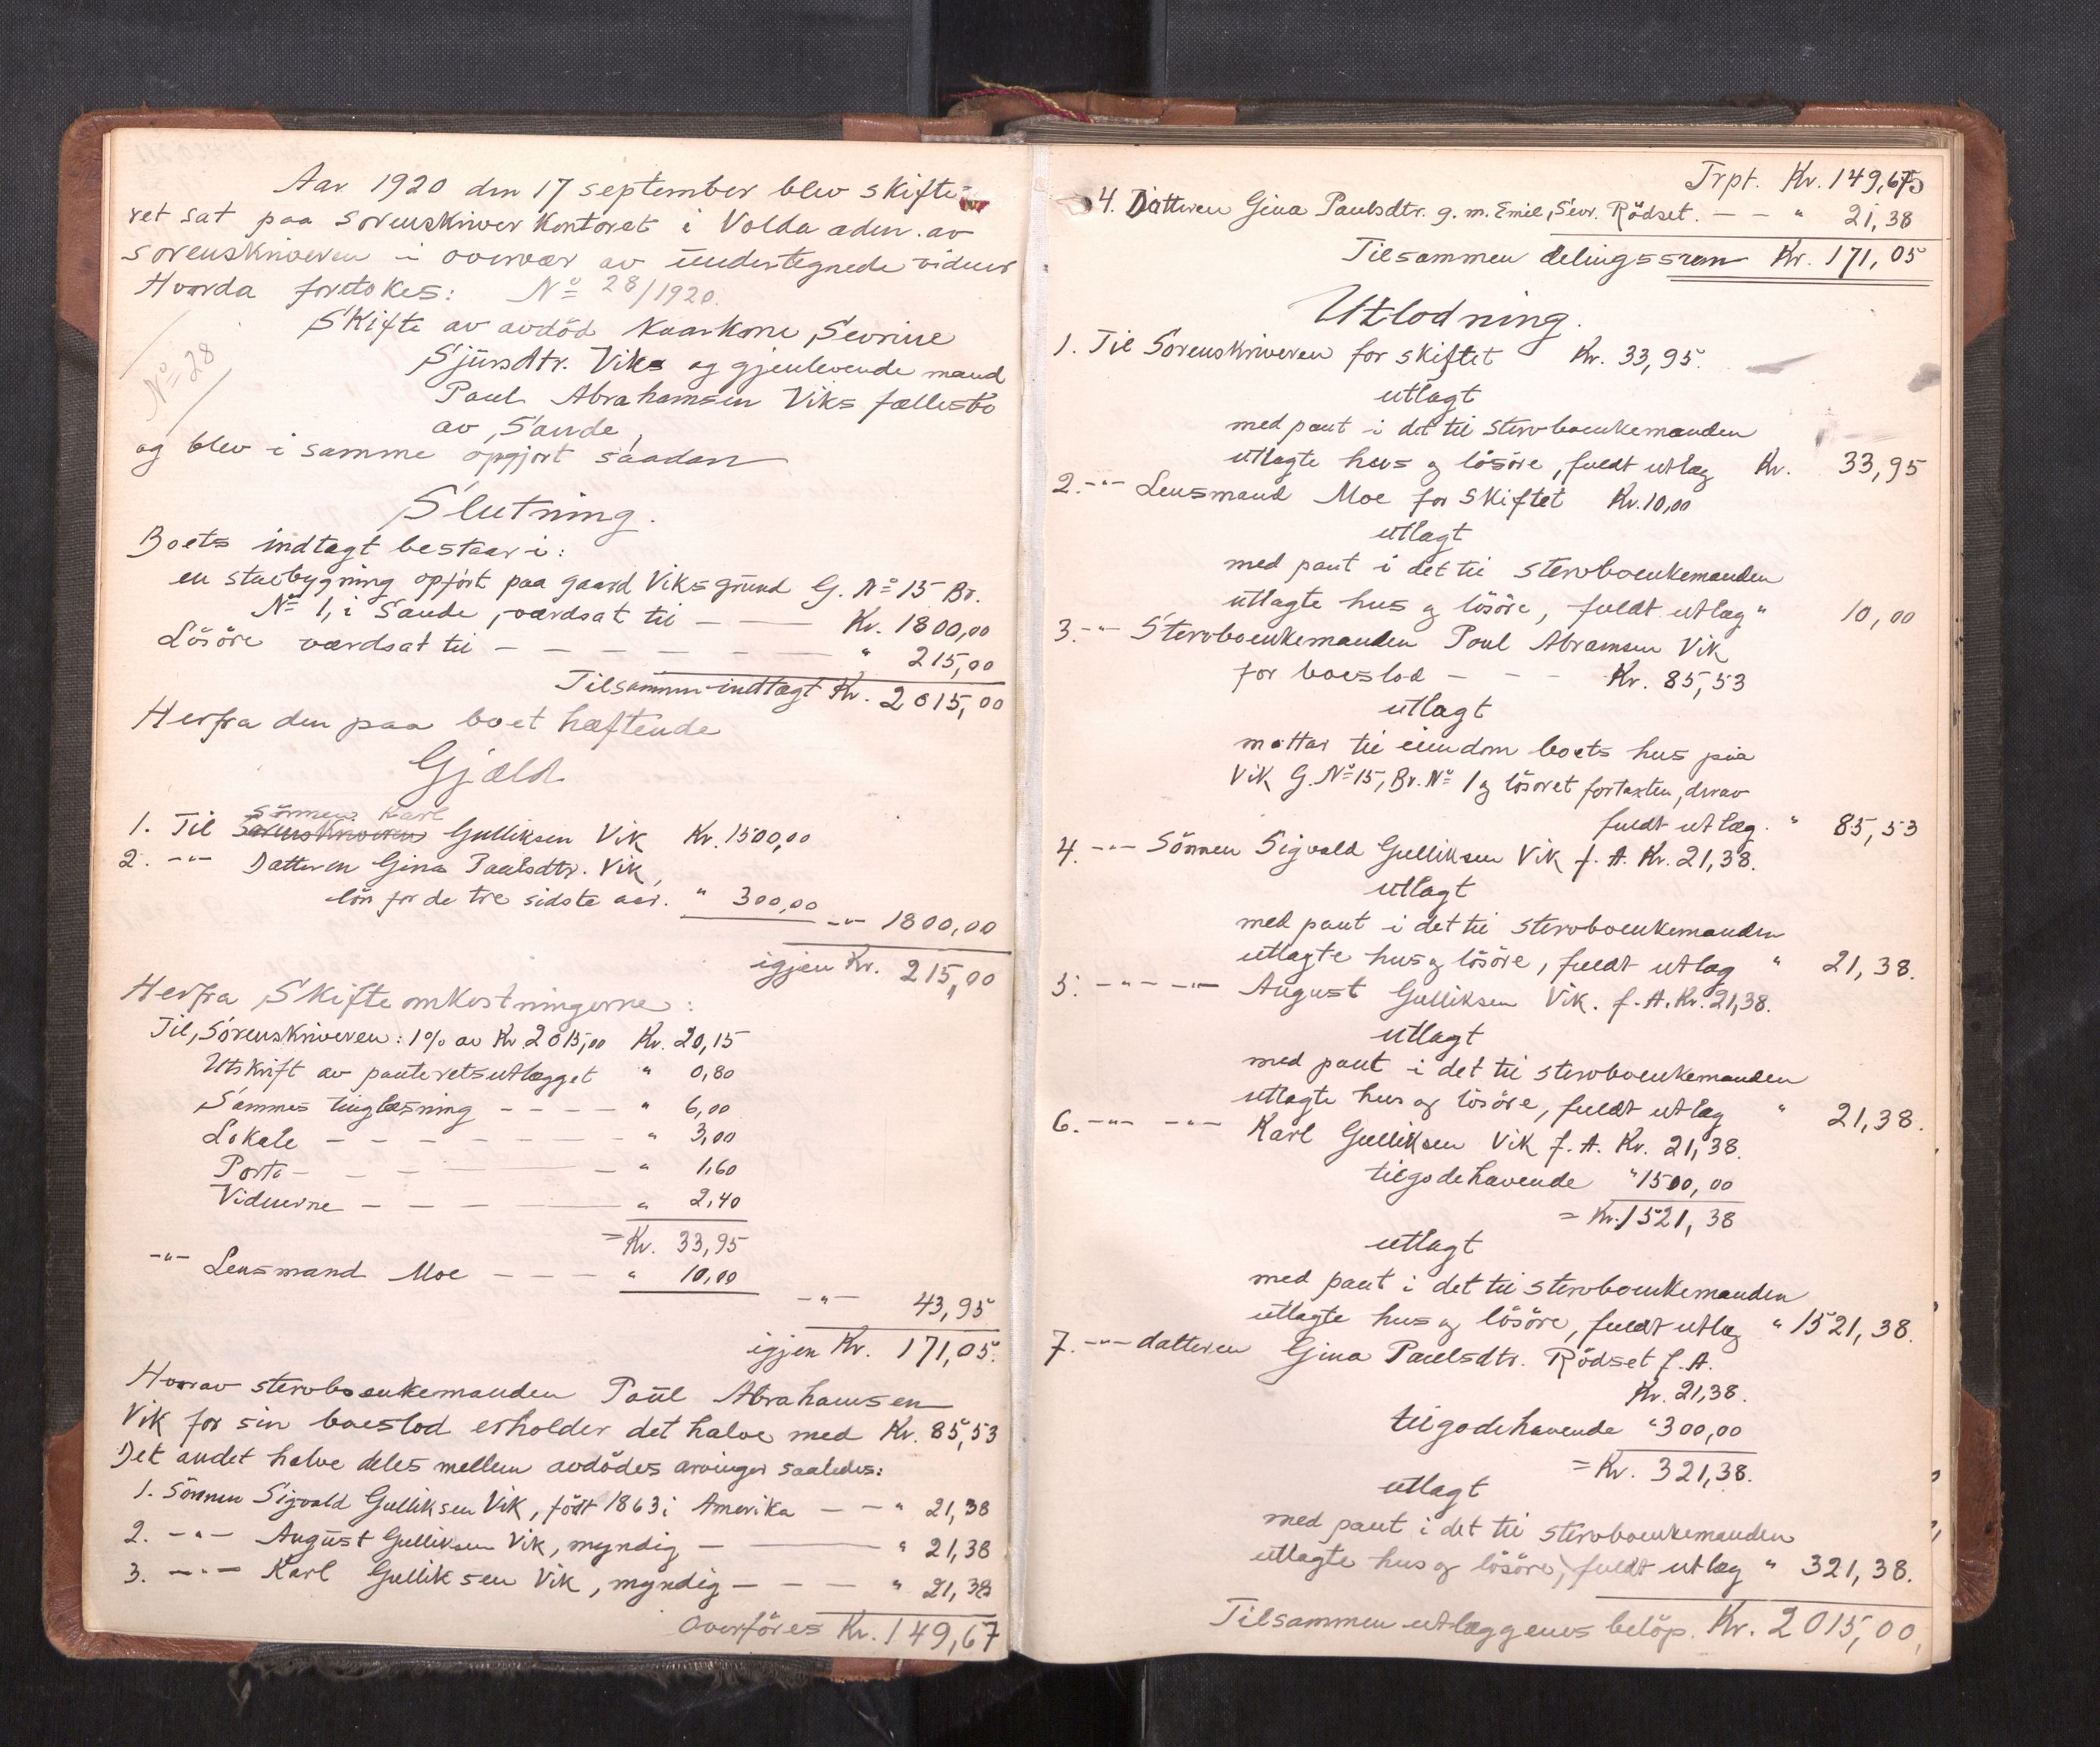 Aar 1920 den 17 september blev skifte-
ret sat paa sorenskriver kontoret i Volda adm. av
sorenskriveren i overvær av undertegnede vidner
Hvorda foretokes: No 28/1920.
No 28
Skifte av avdöd kaarkone Sevrine
Sjursdtr. Viks og gjenlevende mand
Paul Abrahamsen Viks fællesbo
av Sande,
og blev i samme opgjort saadan
Slutning.
Boets indtægt bestaar i:
en stuebygning opfört paa gaard Viks grund G. No 15 Br.
No 1, i Sande, værdsat til — — Kr. 1800,00
Lösöre værdsat til — — — — — — " 215,00
Tilsammen indtægt Kr. 2015,00
Herfra den paa boet hæftende
Gjæld
Sönnen Karl
1. Til Sorenskriveren Gulliksen Vik Kr. 1500,00
2. -"- Datteren Gina Paulsdtr. Vik,
lön for de tre sidste aar. " 300,00
-"- 1800,00
igjen Kr. 215,00
Herfra Skifteomkostningerne:
Til Sorenskriveren: 1% av Kr. 2015,00 Kr. 20,15
Utskrift av panteretsutlægget " 0,80
Sammes tinglæsning - - - - " 6,00
Lokale - - - - - - - " 3,00
Porto - - - - - " 1,60
Vidnerne - - - - " 2,40
= Kr. 33,95
-"- Lensmand Moe - - - " 10,00
-"- 43,95
igjen Kr. 171,05.
Hvorav stervboenkemanden Paul Abrahamsen
Vik for sin boeslod erholder det halve med Kr. 85,53
Det andet halve deles mellem avdödes arvinger saaledes:
1. Sönnen Sigvald Gulliksen Vik, födt 1863 i Amerika - - " 21,38
2. -"- August Gulliksen Vik, myndig - — " 21,38
3. -"- Karl Gulliksen Vik, myndig - - - " 21,38
Overföres Kr. 149,67
Trpt. Kr. 149,67
4. Datteren Gina Paulsdtr. g. m. Emil Sevr. Rödset. - - " 21,38
Tilsammen delingssum Kr. 171,05
Utlodning.
1. Til Sorenskriveren for skiftet Kr. 33,95.
utlagt
med pant i det til stervboenkemanden
utlagte hus og lösöre, fuldt utlæg Kr. 33,95
2. -"- Lensmand Moe for Skiftet Kr. 10,00
utlagt
med pant i det til stervboenkemanden
utlagte hus og lösöre, fuldt utlæg " 10,00
3. -"- Stervboenkemanden Poul Abramsen Vik
for boeslod - - - Kr. 85,53
utlagt
mottar til eiendom boets hus paa
Vik G. No 15, Br. No 1 og lösöret for taxten, derav
fuldt utlæg. " 85,53
4. -"- Sönnen Sigvald Gulliksen Vik f. A. Kr. 21,38.
utlagt
med pant i det til stervboenkemanden
utlagte hus og lösöre, fuldt utlæg " 21,38.
5. -"- -"- August Gulliksen Vik. f. A. Kr. 21,38.
utlagt
med pant i det til stervboenkemanden
utlagte hus og lösöre, fuldt utlæg " 21,38.
6. -"- -"- Karl Gulliksen Vik f. A. Kr. 21,38.
tilgodehavende " 1500,00
= Kr. 1521,38
utlagt
med pant i det til stervboenkemanden
utlagte hus og lösöre, fuldt utlæg " 1521,38.
7. -"- datteren Gina Paulsdtr. Rödset f. A.
Kr. 21,38.
tilgodehavende " 300,00
= Kr. 321,38.
utlagt
med pant i det til stervboenkemanden
utlagte hus og lösöre, fuldt utlæg " 321,38.
Tilsammen utlæggenes belöp. Kr. 2015,00,